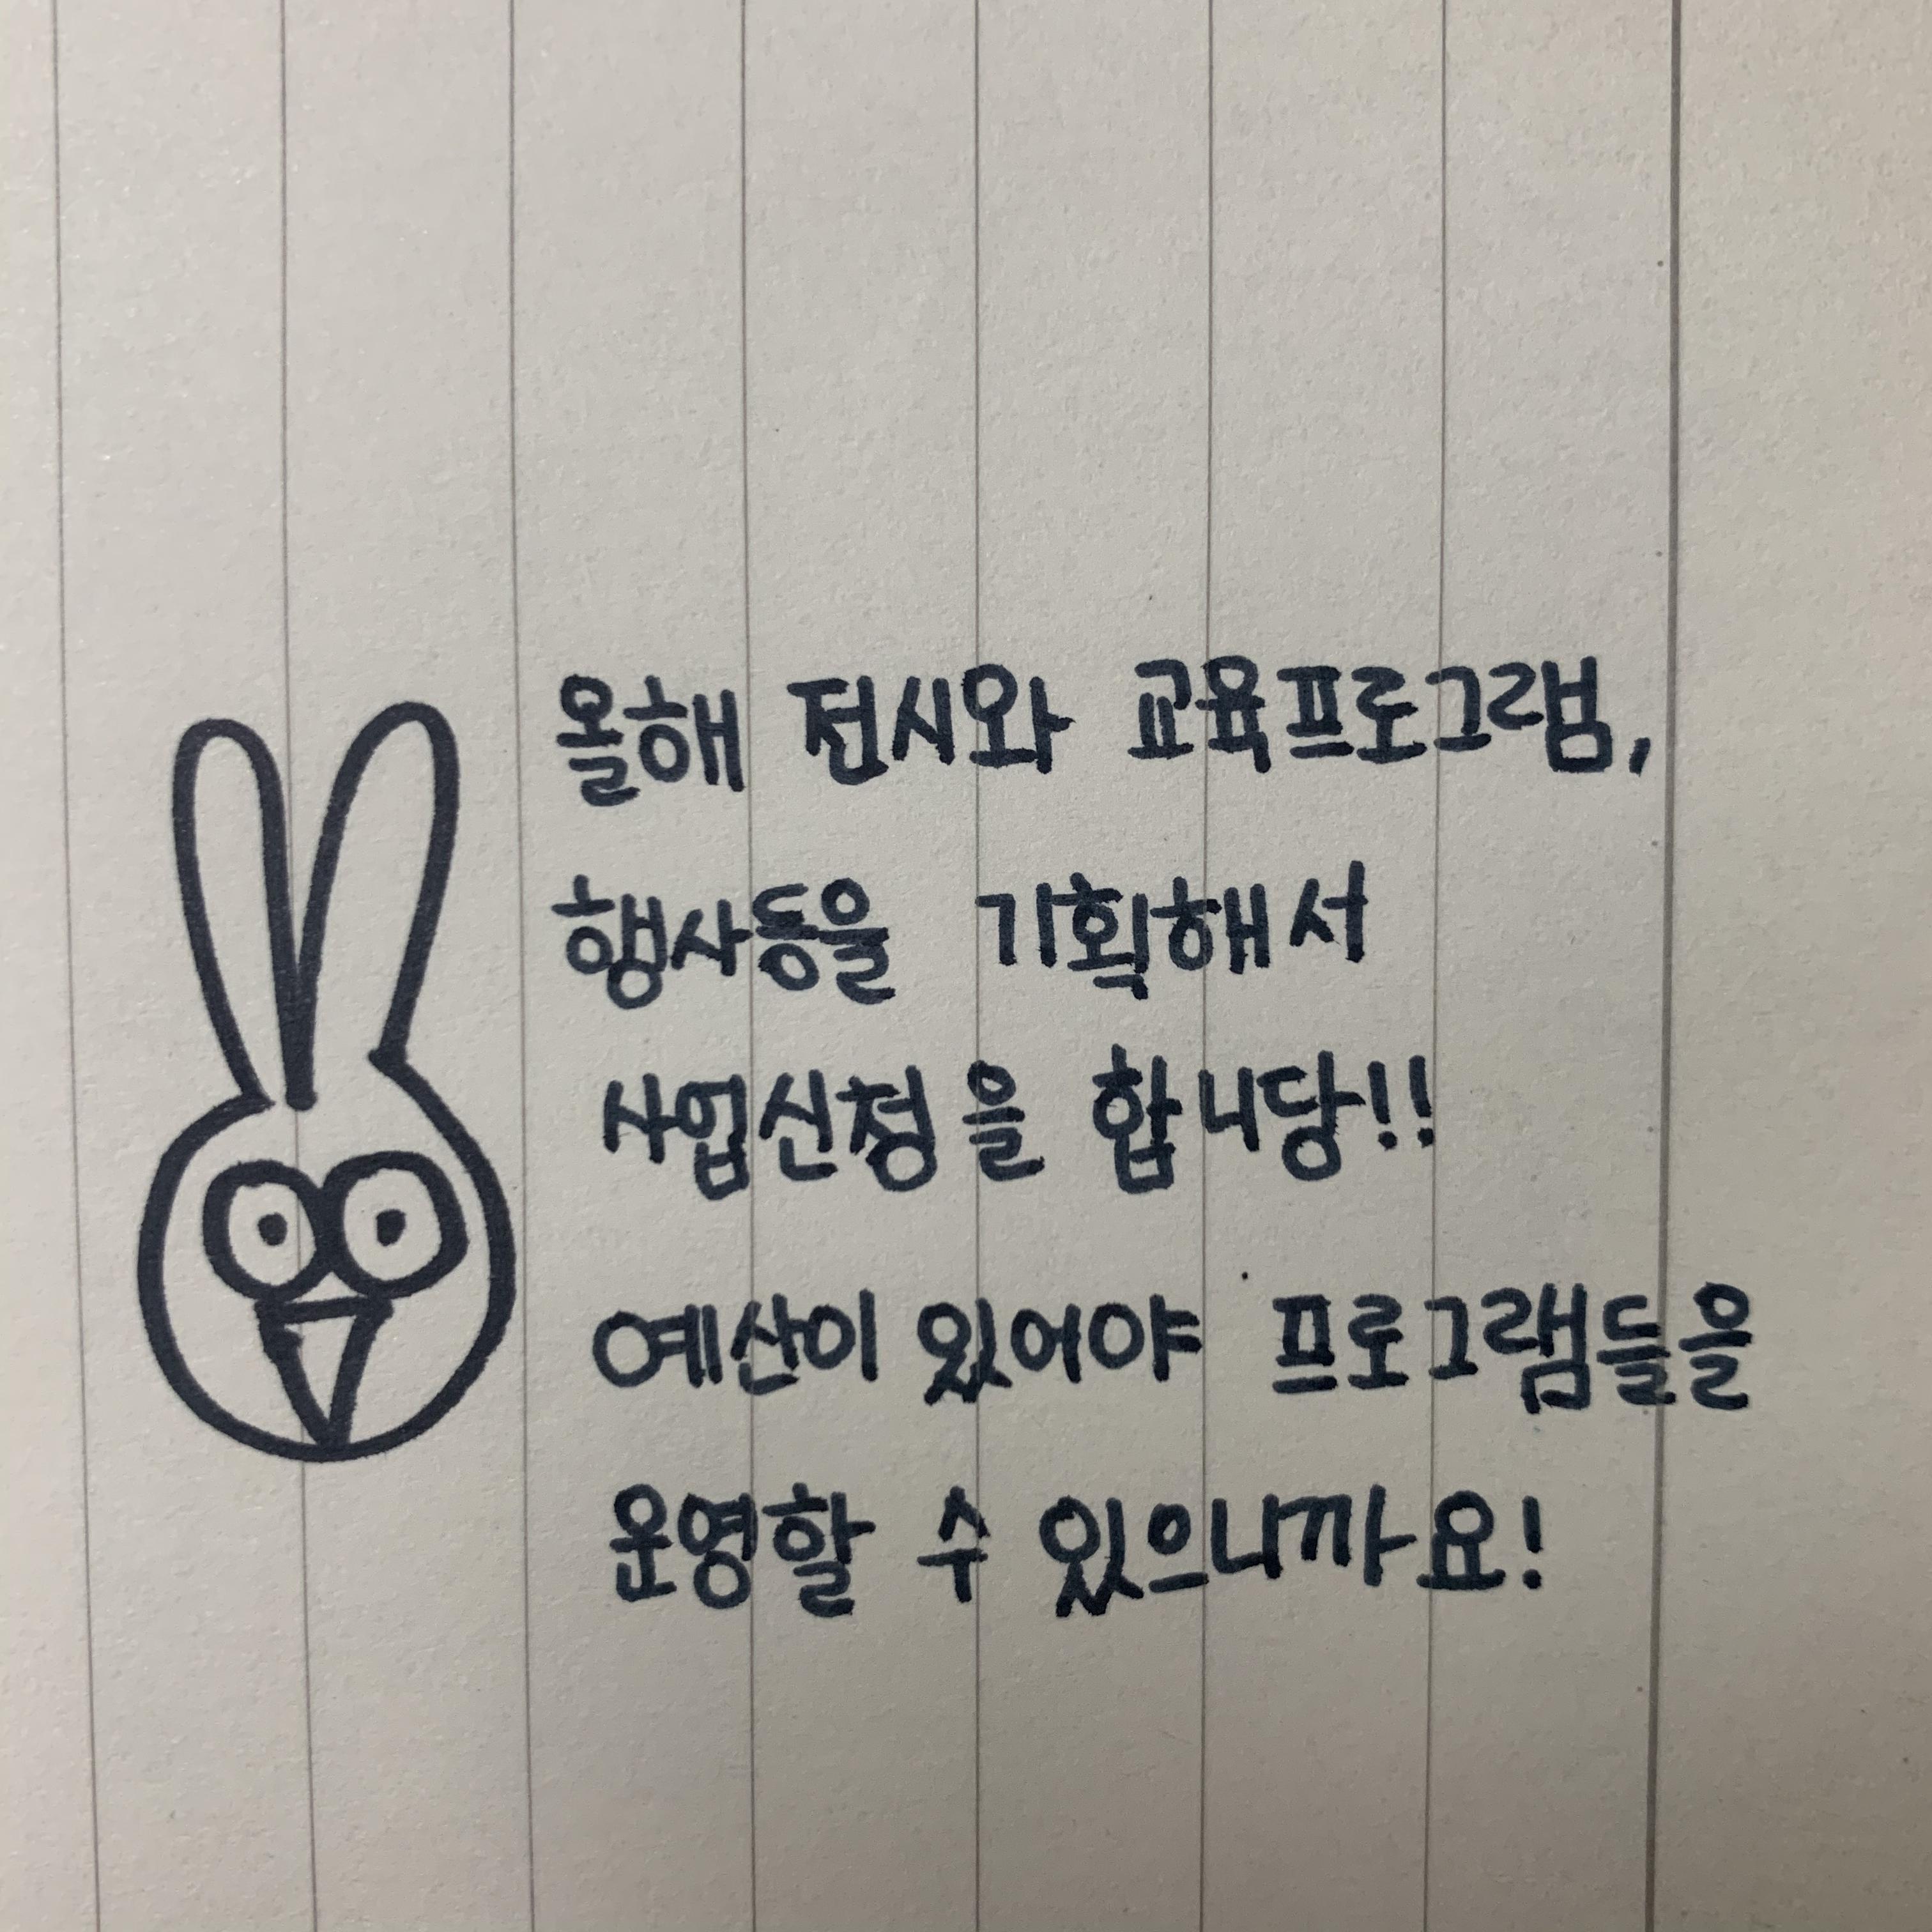 올해 전시와 교육프로그램,
행사등을 기획해서
사업신청을 합니당!!
예산이 있어야 프로그램들을
운영할 수 있으니까요!